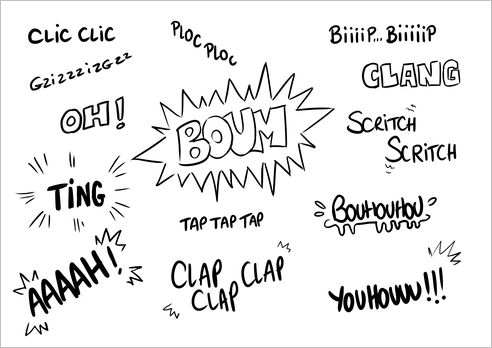 CLIC CLIC
PLOC PLOC
BiiiiP... BiiiiiP
GZIZZZIZGZZ
CLANG
OH!
BOUM
SCRITCH
SCRITCH
TING
BOUHOUHOU
TAP TAP TAP
AAAAH!
CLAP CLAP CLAP
YOUHOUUU!!!